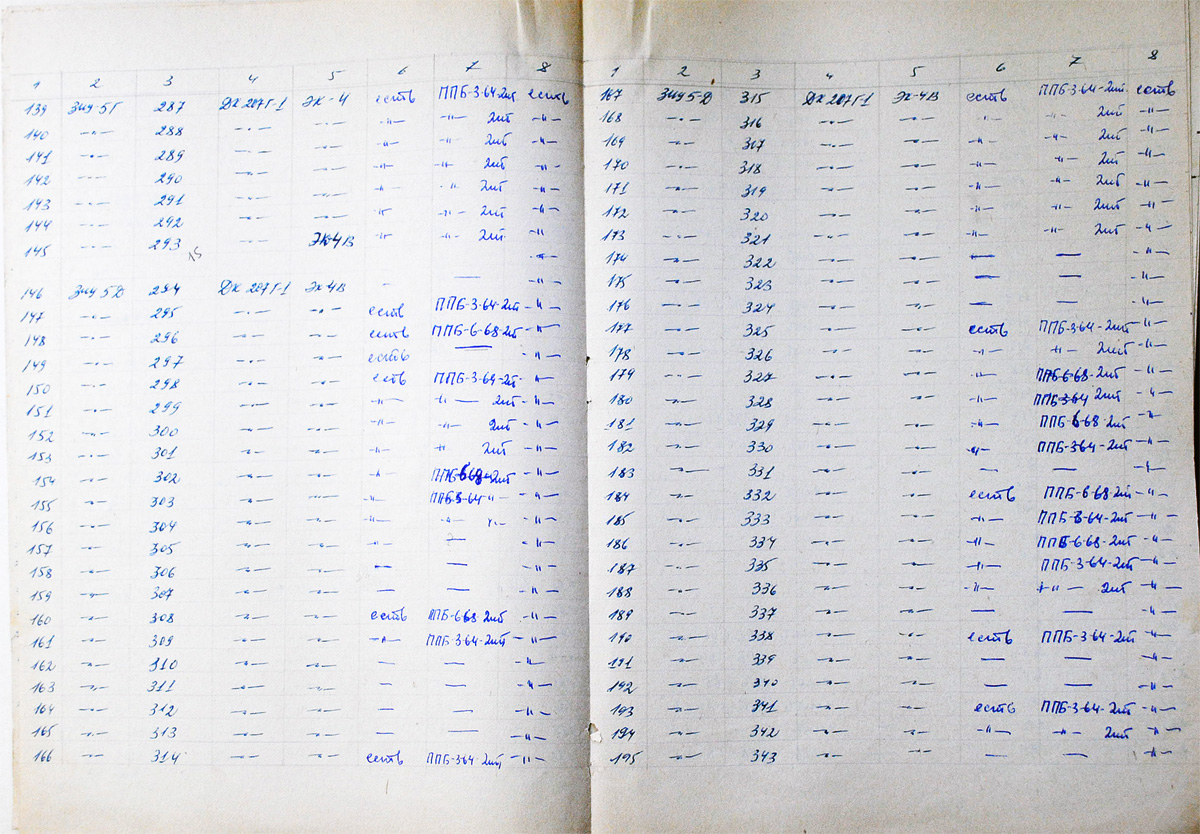 1 2 3 4 5 6 7 8
139 Зиу 5 Г 287 ДК 207Г-1 ЭК-4 есть ППБ-3-64-2шт есть
140 -"- 288 -"- -"- -"- -"- 2шт -"-
141 -"- 289 -"- -"- -"- -"- 2шт -"-
142 -"- 290 -"- -"- -"- -"- 2шт -"-
143 -"- 291 -"- -"- -"- -"- 2шт -"-
144 -"- 292 -"- -"- -"- -"- 2шт -"-
145 -"- 293 -"- ЭК-4В -"- -"- 2шт -"-
15 -"-
146 Зиу 5 Д 294 ДК 207Г-1 ЭК 4В - —
147 -"- 295 -"- -"- есть ППБ-3-64-2шт -"-
148 -"- 296 -"- -"- есть ППБ-6-68-2шт -"-
149 -"- 297 -"- -"- есть — -"-
150 -"- 298 -"- -"- есть ППБ-3-64-2шт -"-
151 -"- 299 -"- -"- -"- -"- 2шт -"-
152 -"- 300 -"- -"- -"- -"- 2шт -"-
153 -"- 301 -"- -"- -"- -"- 2шт -"-
154 -"- 302 -"- -"- -"- ППБ-6-68-2шт -"-
155 -"- 303 -"- -"- -"- ППБ-3-64 -"- -"-
156 -"- 304 -"- -"- -"- -"- -"- -"-
157 -"- 305 -"- -"- -"- — -"-
158 -"- 306 -"- -"- — — -"-
159 -"- 307 -"- -"- — — -"-
160 -"- 308 -"- -"- есть ППБ-6-68-2шт -"-
161 -"- 309 -"- -"- -"- ППБ-3-64-2шт -"-
162 -"- 310 -"- -"- — — -"-
163 -"- 311 -"- -"- — — -"-
164 -"- 312 -"- -"- — — -"-
165 -"- 313 -"- -"- — — -"-
166 -"- 314 -"- -"- есть ППБ-3-64-2шт -"-
1 2 3 4 5 6 7 8
167 Зиу 5-Д 315 ДК 207Г-1 ЭК-4В есть ППБ-3-64-2шт есть
168 -"- 316 -"- -"- -"- -"- 2шт -"-
169 -"- 317 -"- -"- -"- -"- 2шт -"-
170 -"- 318 -"- -"- -"- -"- 2шт -"-
171 -"- 319 -"- -"- -"- -"- 2шт -"-
172 -"- 320 -"- -"- -"- -"- 2шт -"-
173 -"- 321 -"- -"- -"- -"- 2шт -"-
174 -"- 322 -"- -"- — — -"-
175 -"- 323 -"- -"- — — -"-
176 -"- 324 -"- -"- — — -"-
177 -"- 325 -"- -"- есть ППБ-3-64-2шт -"-
178 -"- 326 -"- -"- -"- -"- 2шт -"-
179 -"- 327 -"- -"- -"- ППБ-6-68-2шт -"-
180 -"- 328 -"- -"- -"- ППБ-3-64 2шт -"-
181 -"- 329 -"- -"- -"- ППБ-6-68-2шт -"-
182 -"- 330 -"- -"- -"- ППБ-3-64-2шт -"-
183 -"- 331 -"- -"- — — -"-
184 -"- 332 -"- -"- есть ППБ-6-68-2шт -"-
185 -"- 333 -"- -"- -"- ППБ-3-64-2шт -"-
186 -"- 334 -"- -"- -"- ППБ-6-68-2шт -"-
187 -"- 335 -"- -"- -"- ППБ-3-64-2шт -"-
188 -"- 336 -"- -"- -"- -"- 2шт -"-
189 -"- 337 -"- -"- — — -"-
190 -"- 338 -"- -"- есть ППБ-3-64-2шт -"-
191 -"- 339 -"- -"- — — -"-
192 -"- 340 -"- -"- — — -"-
193 -"- 341 -"- -"- есть ППБ-3-64-2шт -"-
194 -"- 342 -"- -"- -"- -"- 2шт -"-
195 -"- 343 -"- -"- — — -"-